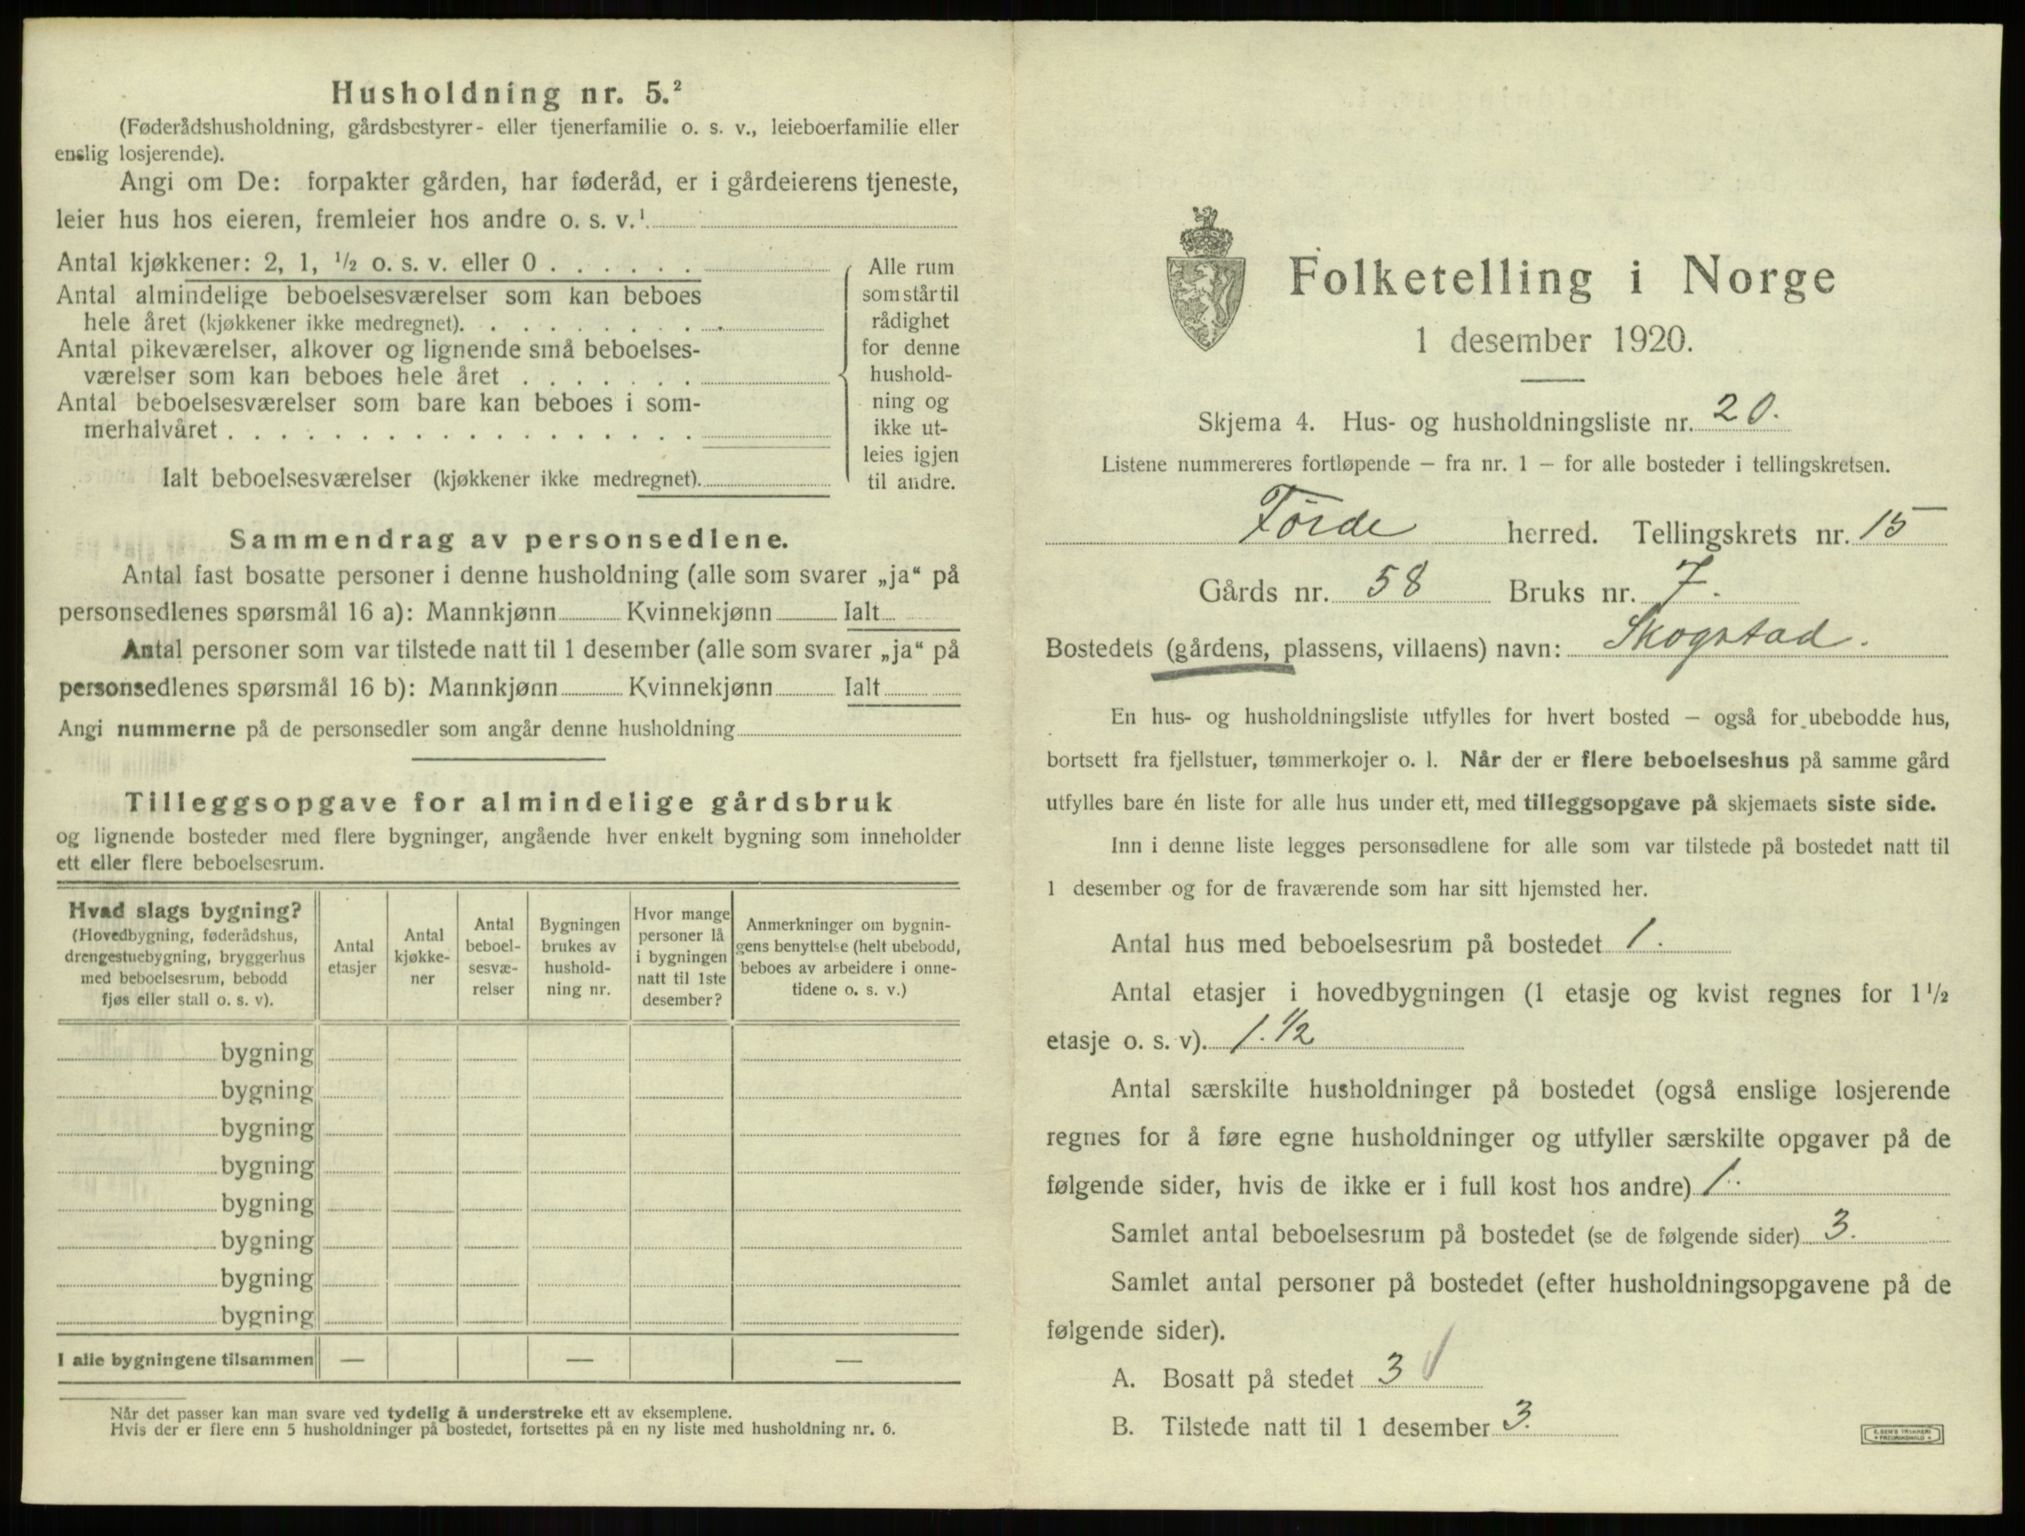 Husholdning nr. 5.²
(Føderådshusholdning, gårdsbestyrer- eller tjenerfamilie o. s. v., leieboerfamilie eller
enslig losjerende).
Angi om De: forpakter gården, har føderåd, er i gårdeierens tjeneste,
leier hus hos eieren, fremleier hos andre o. s. v.¹
Antal kjøkkener: 2, 1, ½ o. s. v. eller 0 . . . . . .
Antal almindelige beboelsesværelser som kan beboes
hele året (kjøkkener ikke medregnet). . . . . . . . . .
Antal pikeværelser, alkover og lignende små beboelses-
værelser som kan beboes hele året . . . . . . .
Antal beboelsesværelser som bare kan beboes i som-
merhalvåret . . . . . . . . . . . . . . . . . .
Ialt beboelsesværelser (kjøkkener ikke medregnet).
Alle rum
som står til
rådighet
for denne
hushold-
ning og
ikke ut-
leies igjen
til andre.
Sammendrag av personsedlene.
Antal fast bosatte personer i denne husholdning (alle som svarer „ja“ på
personsedlenes spørsmål 16 a): Mannkjønn Kvinnekjønn Ialt
Antal personer som var tilstede natt til 1 desember (alle som svarer „ja“ på
personsedlenes spørsmål 16 b): Mannkjønn Kvinnekjønn Ialt
Angi nummerne på de personsedler som angår denne husholdning
Tilleggsopgave for almindelige gårdsbruk
og lignende bosteder med flere bygninger, angående hver enkelt bygning som inneholder
ett eller flere beboelsesrum.
Hvad slags bygning?
(Hovedbygning, føderådshus,
drengestuebygning, bryggerhus
med beboelsesrum, bebodd
fjøs eller stall o. s. v).
Antal
etasjer
Antal
kjøkke-
ner
Antal
beboel-
sesvæ-
relser
Bygningen
brukes av
hushold-
ning nr.
Hvor mange
personer lå
i bygningen
natt til 1ste
desember?
Anmerkninger om bygnin-
gens benyttelse (helt ubebodd,
beboes av arbeidere i onne-
tidene o. s. v.)
bygning
bygning
bygning
bygning
bygning
bygning
bygning
bygning
I alle bygningene tilsammen — — —
Når det passer kan man svare ved tydelig å understreke ett av eksemplene.
Hvis der er flere enn 5 husholdninger på bostedet, fortsettes på en ny liste med husholdning nr. 6.
Folketelling i Norge
1 desember 1920.
Skjema 4. Hus- og husholdningsliste nr. 20.
Listene nummereres fortløpende – fra nr. 1 – for alle bosteder i tellingskretsen.
Førde herred. Tellingskrets nr. 15
Gårds nr. 58 Bruks nr. 7.
Bostedets (gårdens, plassens, villaens) navn: Skogstad.
En hus- og husholdningsliste utfylles for hvert bosted – også for ubebodde hus,
bortsett fra fjellstuer, tømmerkojer o. l. Når der er flere beboelseshus på samme gård
utfylles bare én liste for alle hus under ett, med tilleggsopgave på skjemaets siste side.
Inn i denne liste legges personsedlene for alle som var tilstede på bostedet natt til
1 desember og for de fraværende som har sitt hjemsted her.
Antal hus med beboelsesrum på bostedet 1.
Antal etasjer i hovedbygningen (1 etasje og kvist regnes for 1½
etasje o. s. v). 1.½
Antal særskilte husholdninger på bostedet (også enslige losjerende
regnes for å føre egne husholdninger og utfyller særskilte opgaver på de
følgende sider, hvis de ikke er i full kost hos andre) 1.
Samlet antal beboelsesrum på bostedet (se de følgende sider) 3.
Samlet antal personer på bostedet (efter husholdningsopgavene på de
følgende sider).
A. Bosatt på stedet 3
B. Tilstede natt til 1 desember 3.